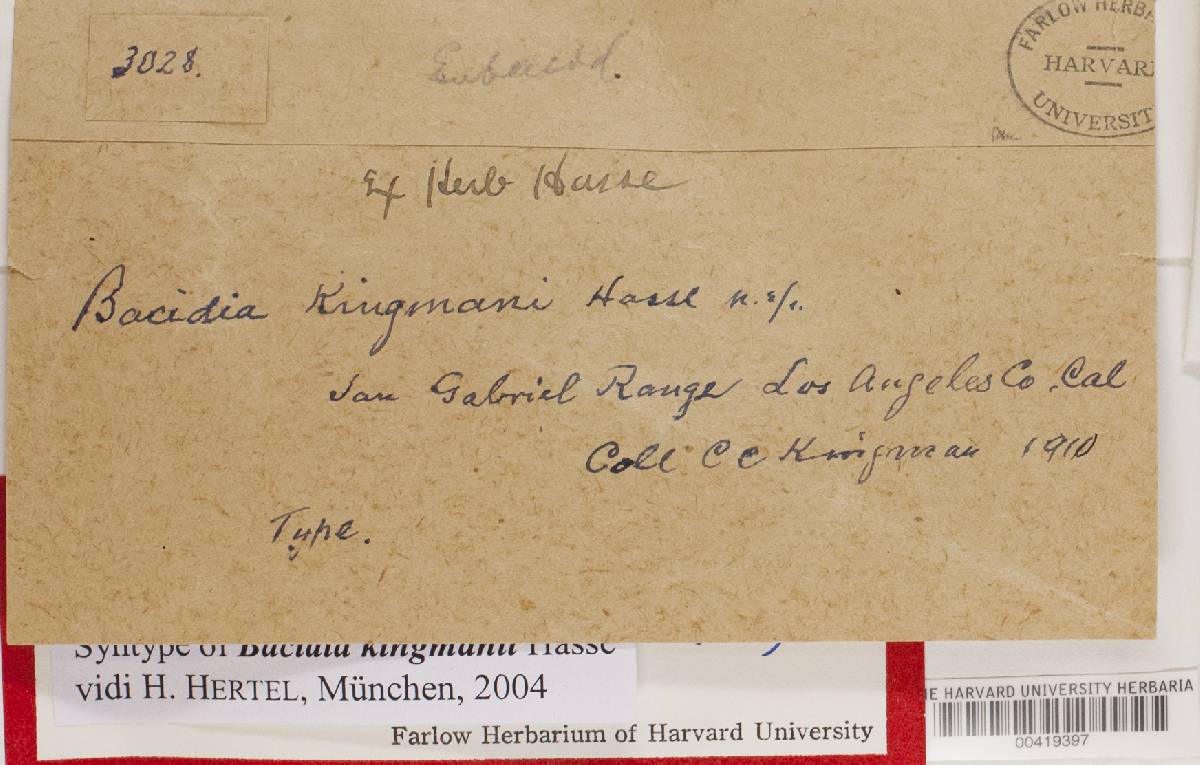 3028.
Eubacid.
FARLOW HERBA
HARVARD
UNIVERSIT
Ex Herb Hasse
Bacidia Kingmani Hasse n. sp.
San Gabriel Range Los Angeles Co. Cal
Coll C C Kingman 1910
Type.
Syntype of Bacidia kingmanii Hasse
vidi H. HERTEL, München, 2004
Farlow Herbarium of Harvard University
E HARVARD UNIVERSITY HERBARIA
00419397